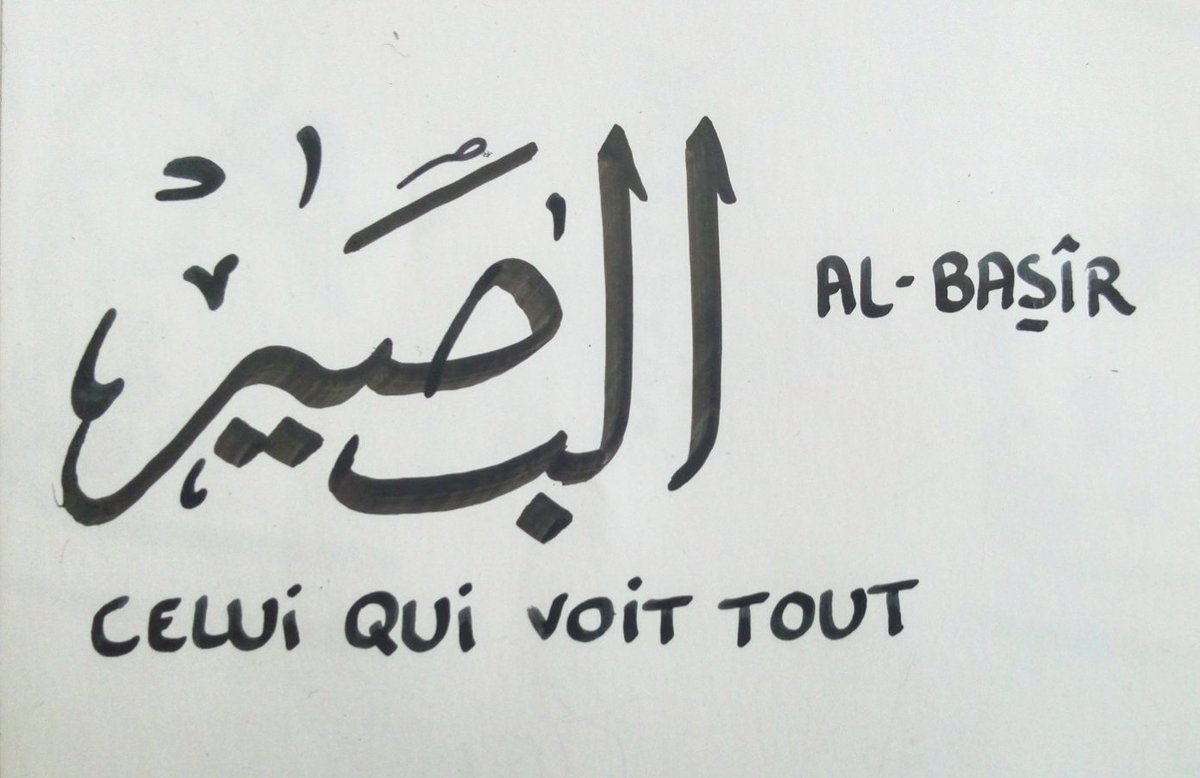 البصير
AL-BAṢÎR
CELUI QUI VOIT TOUT